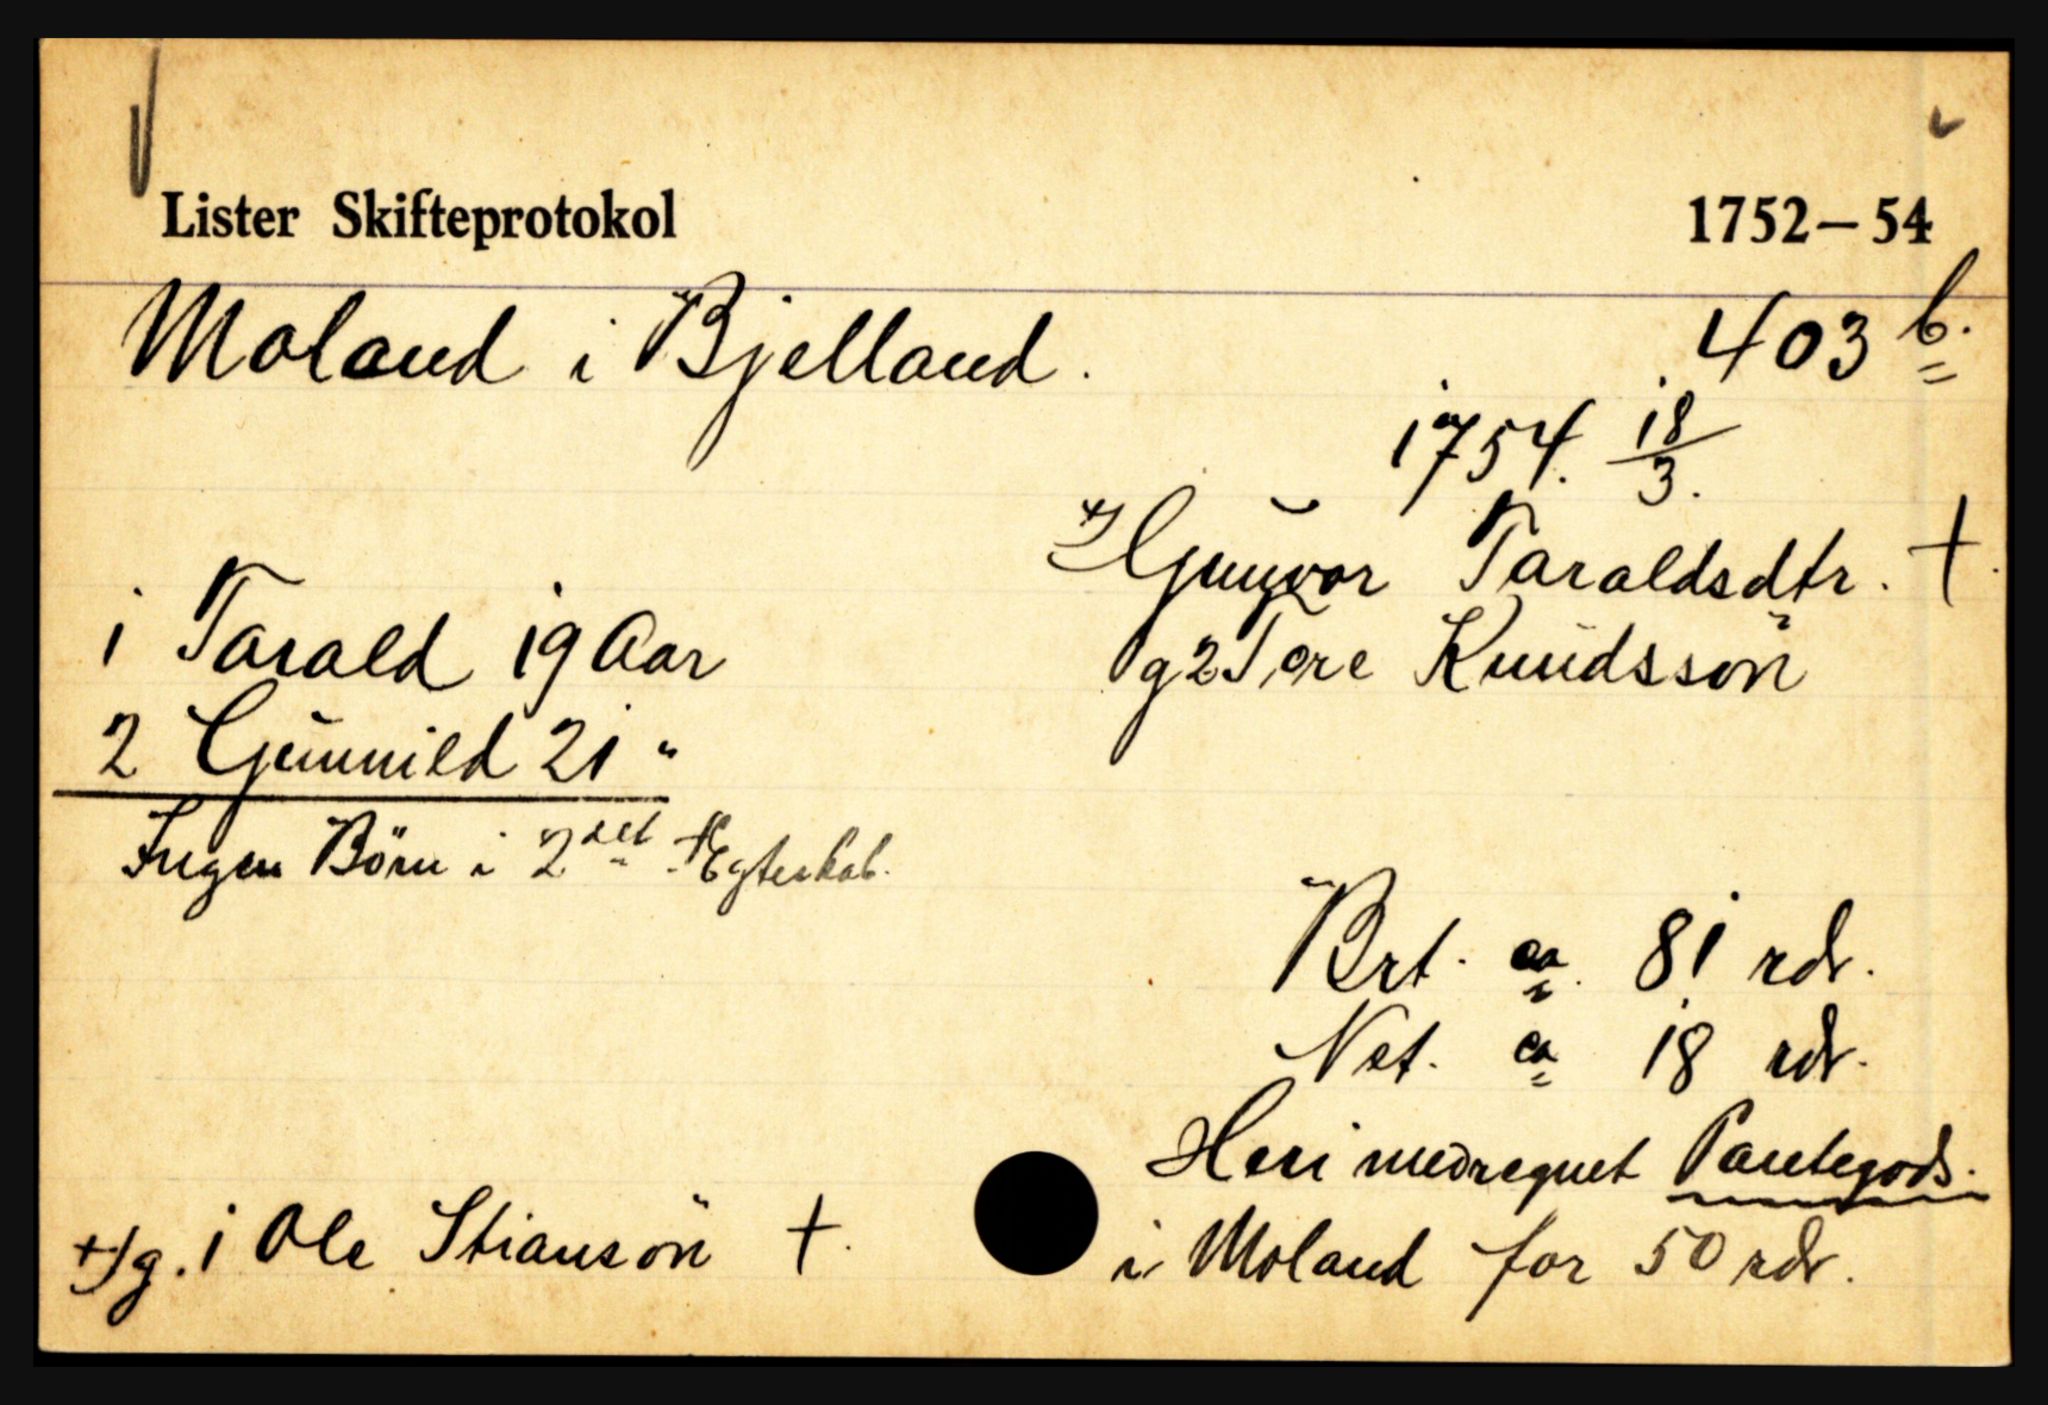 Lister Skifteprotokol 1752–54
Moland i Bjelland. 403 b.
1754. 18/3.
+) Gunvor Taraldsdtr. †.
g 2 Tore Knudssön
1 Tarald 19 Aar
2 Gunnild 21 "
Ingen Börn i 2det Egteskab.
Brt. ca. 81 rdr.
Net. ca 18 rdr.
Heri medregnet Pantegods.
i Moland for 50 rdr.
+) g. 1 Ole Stiansön †.